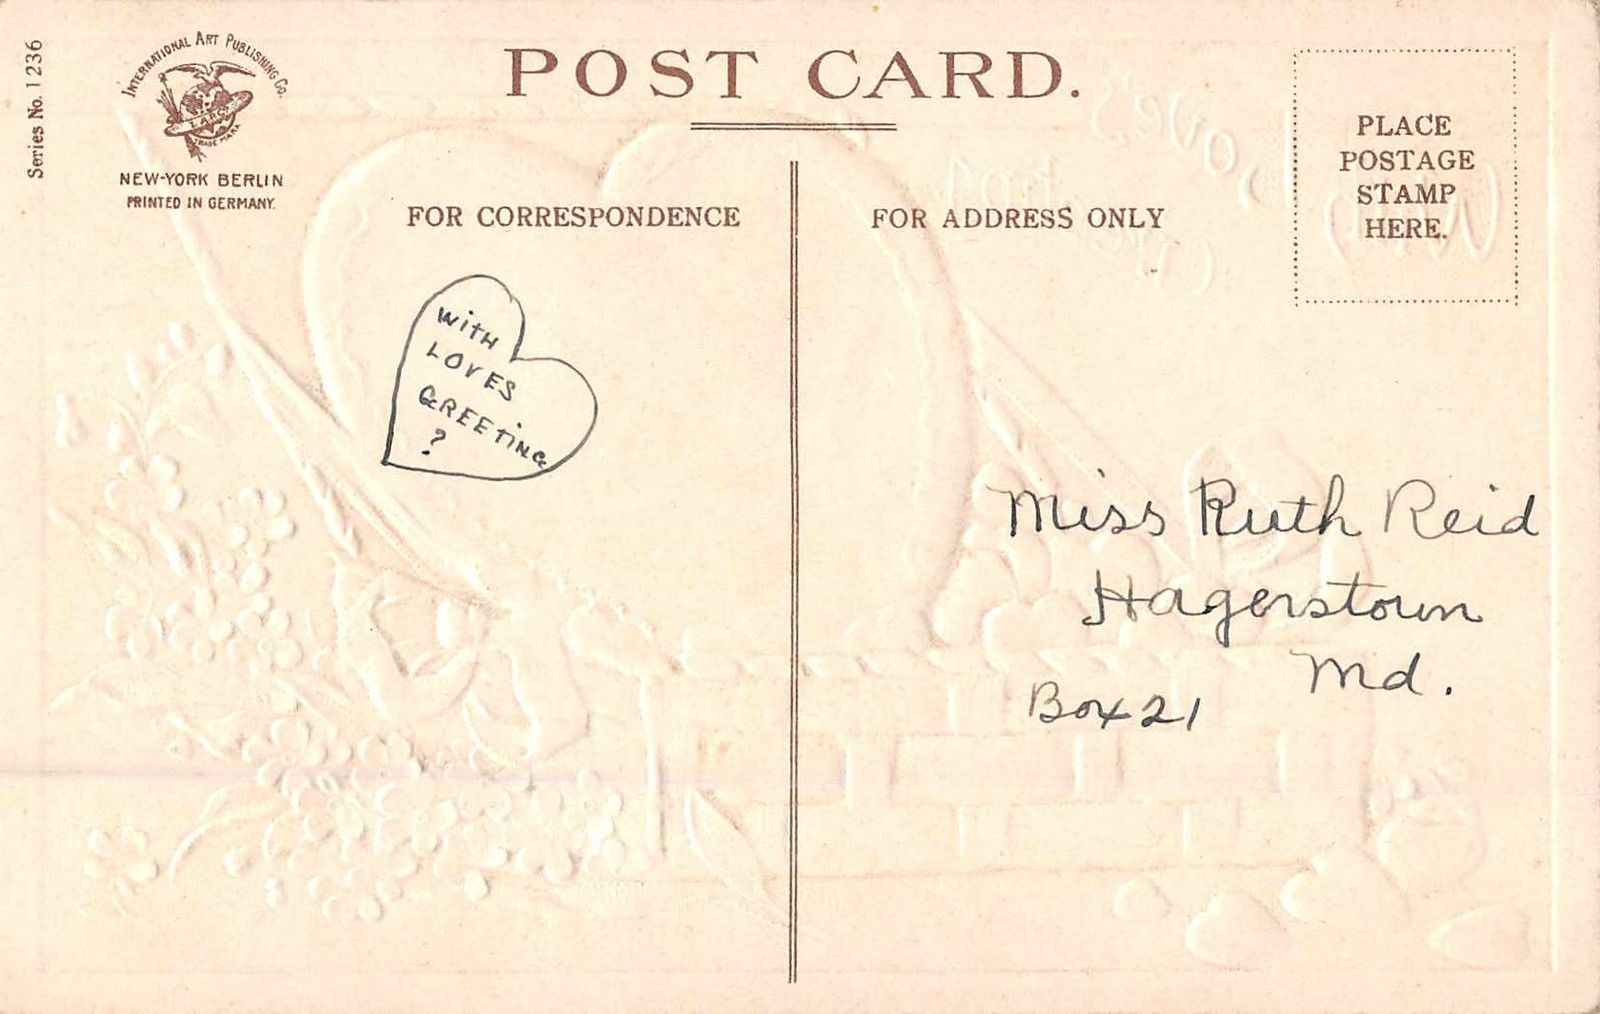 Series No. 1236
INTERNATIONAL ART PUBLISHING CO.
I.A.P.CO.
TRADE MARK
NEW-YORK BERLIN
PRINTED IN GERMANY.
POST CARD.
FOR CORRESPONDENCE
FOR ADDRESS ONLY
PLACE
POSTAGE
STAMP
HERE.
WiTH
LOVES
GREETiNG
?
Miss Ruth Reid
Hagerstown
Md.
Box 21